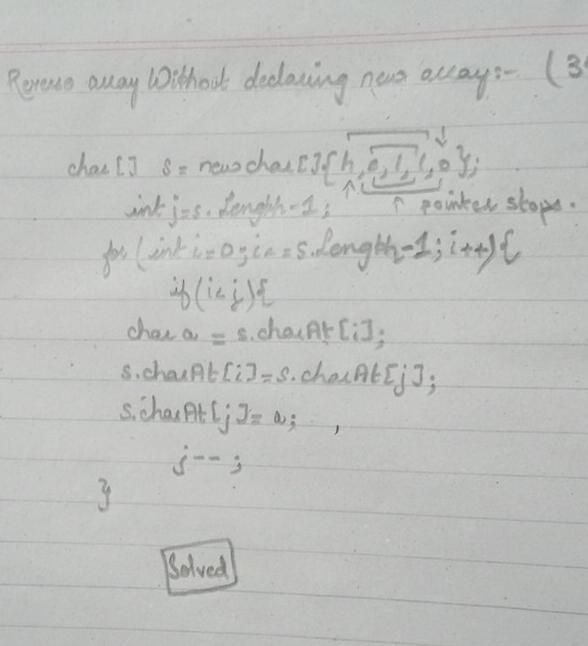 Reverse array Without declaring new array:- (34
char[] s = new char[]{h,e,l,l,o};
int j=s.length-1; ↑ pointer stops.
for(int i=0;i<=s.length-1;i++){
if(i<j){
char a = s.charAt[i];
s.charAt[i]=s.charAt[j];
s.charAt[j]=a; ,
j--;
}
Solved